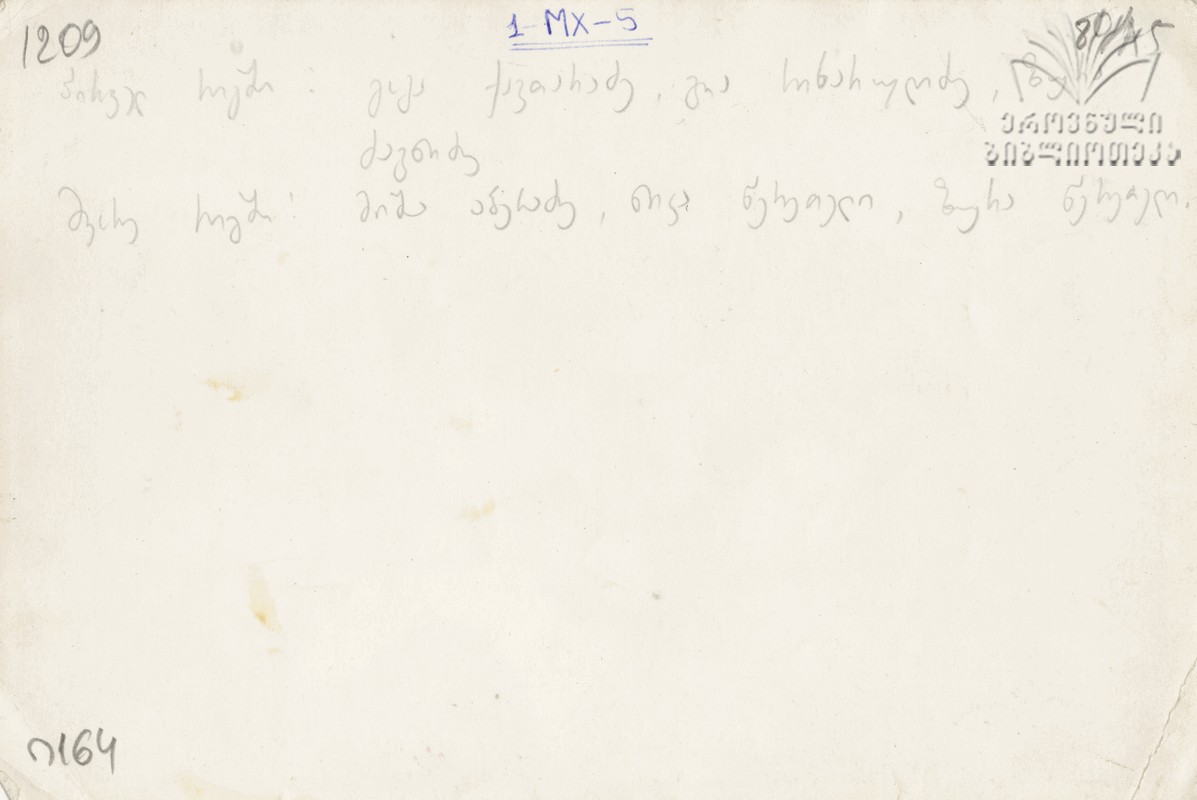 1209
1-MX-5
80145
ეროვნული
ბიბლიოთეკა
პირველ რიგში: გიგა ქავთარაძე, გია სიხარულიძე,
ძაგნიძე
მეორე რიგში: მიშა აბურაძე, ნიკა წერეთელი, ზურა წერეთელი.
ი164